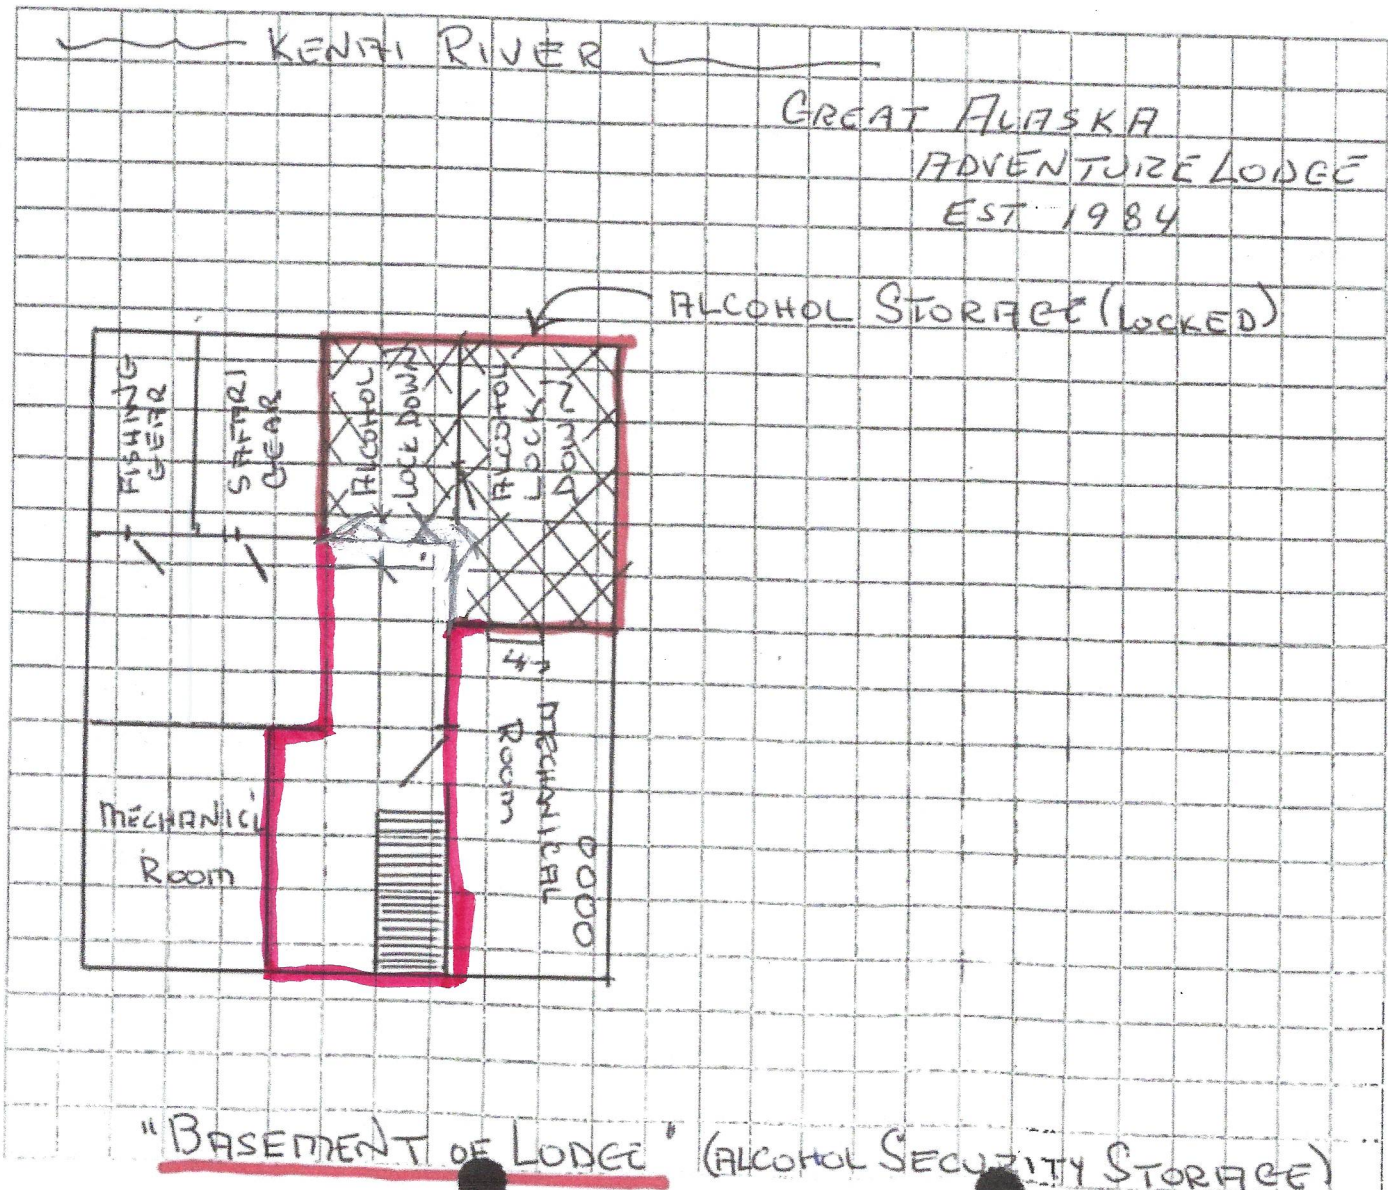 KENAI RIVER
GREAT ALASKA
ADVENTURE LODGE
EST 1984
ALCOHOL STORAGE (LOCKED)
FISHING
GEAR
SAFARI
GEAR
ALCOHOL
LOCK DOWN
ALCOHOL
LOCK
DOWN
MECHANICAL
ROOM
MECHANICL
ROOM
"BASEMENT OF LODGE" (ALCOHOL SECURITY STORAGE)